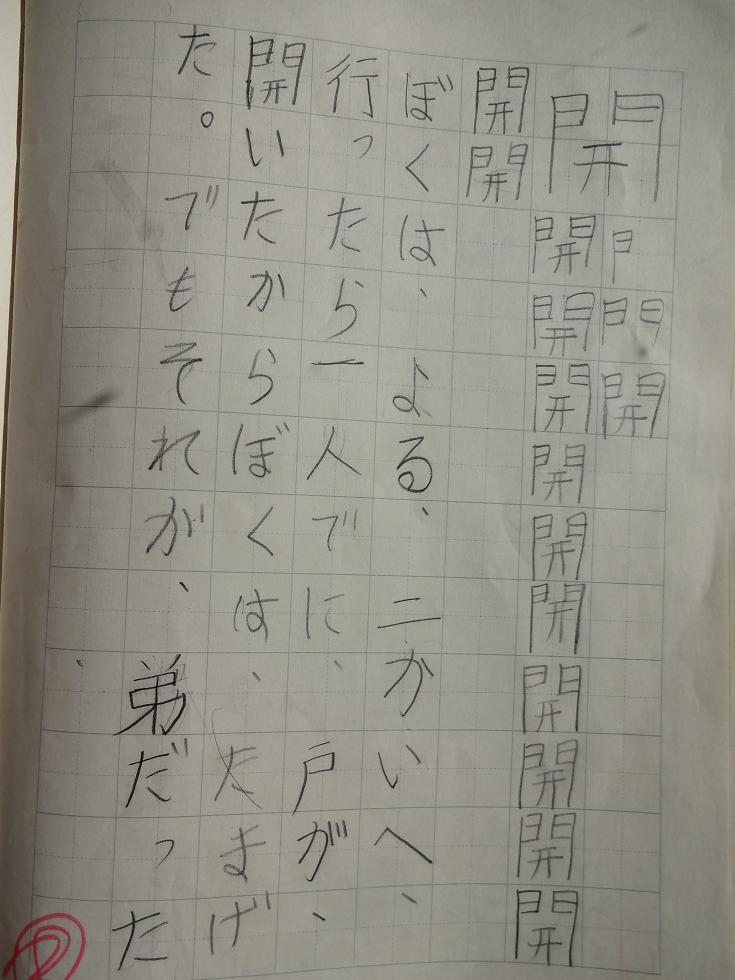 開門開
開開開開開開開開開開
開開
ぼくは、よる、二かいへ、
行ったら一人でに、戸が、
開いたからぼくは、たまげ
た。でもそれが、弟だった